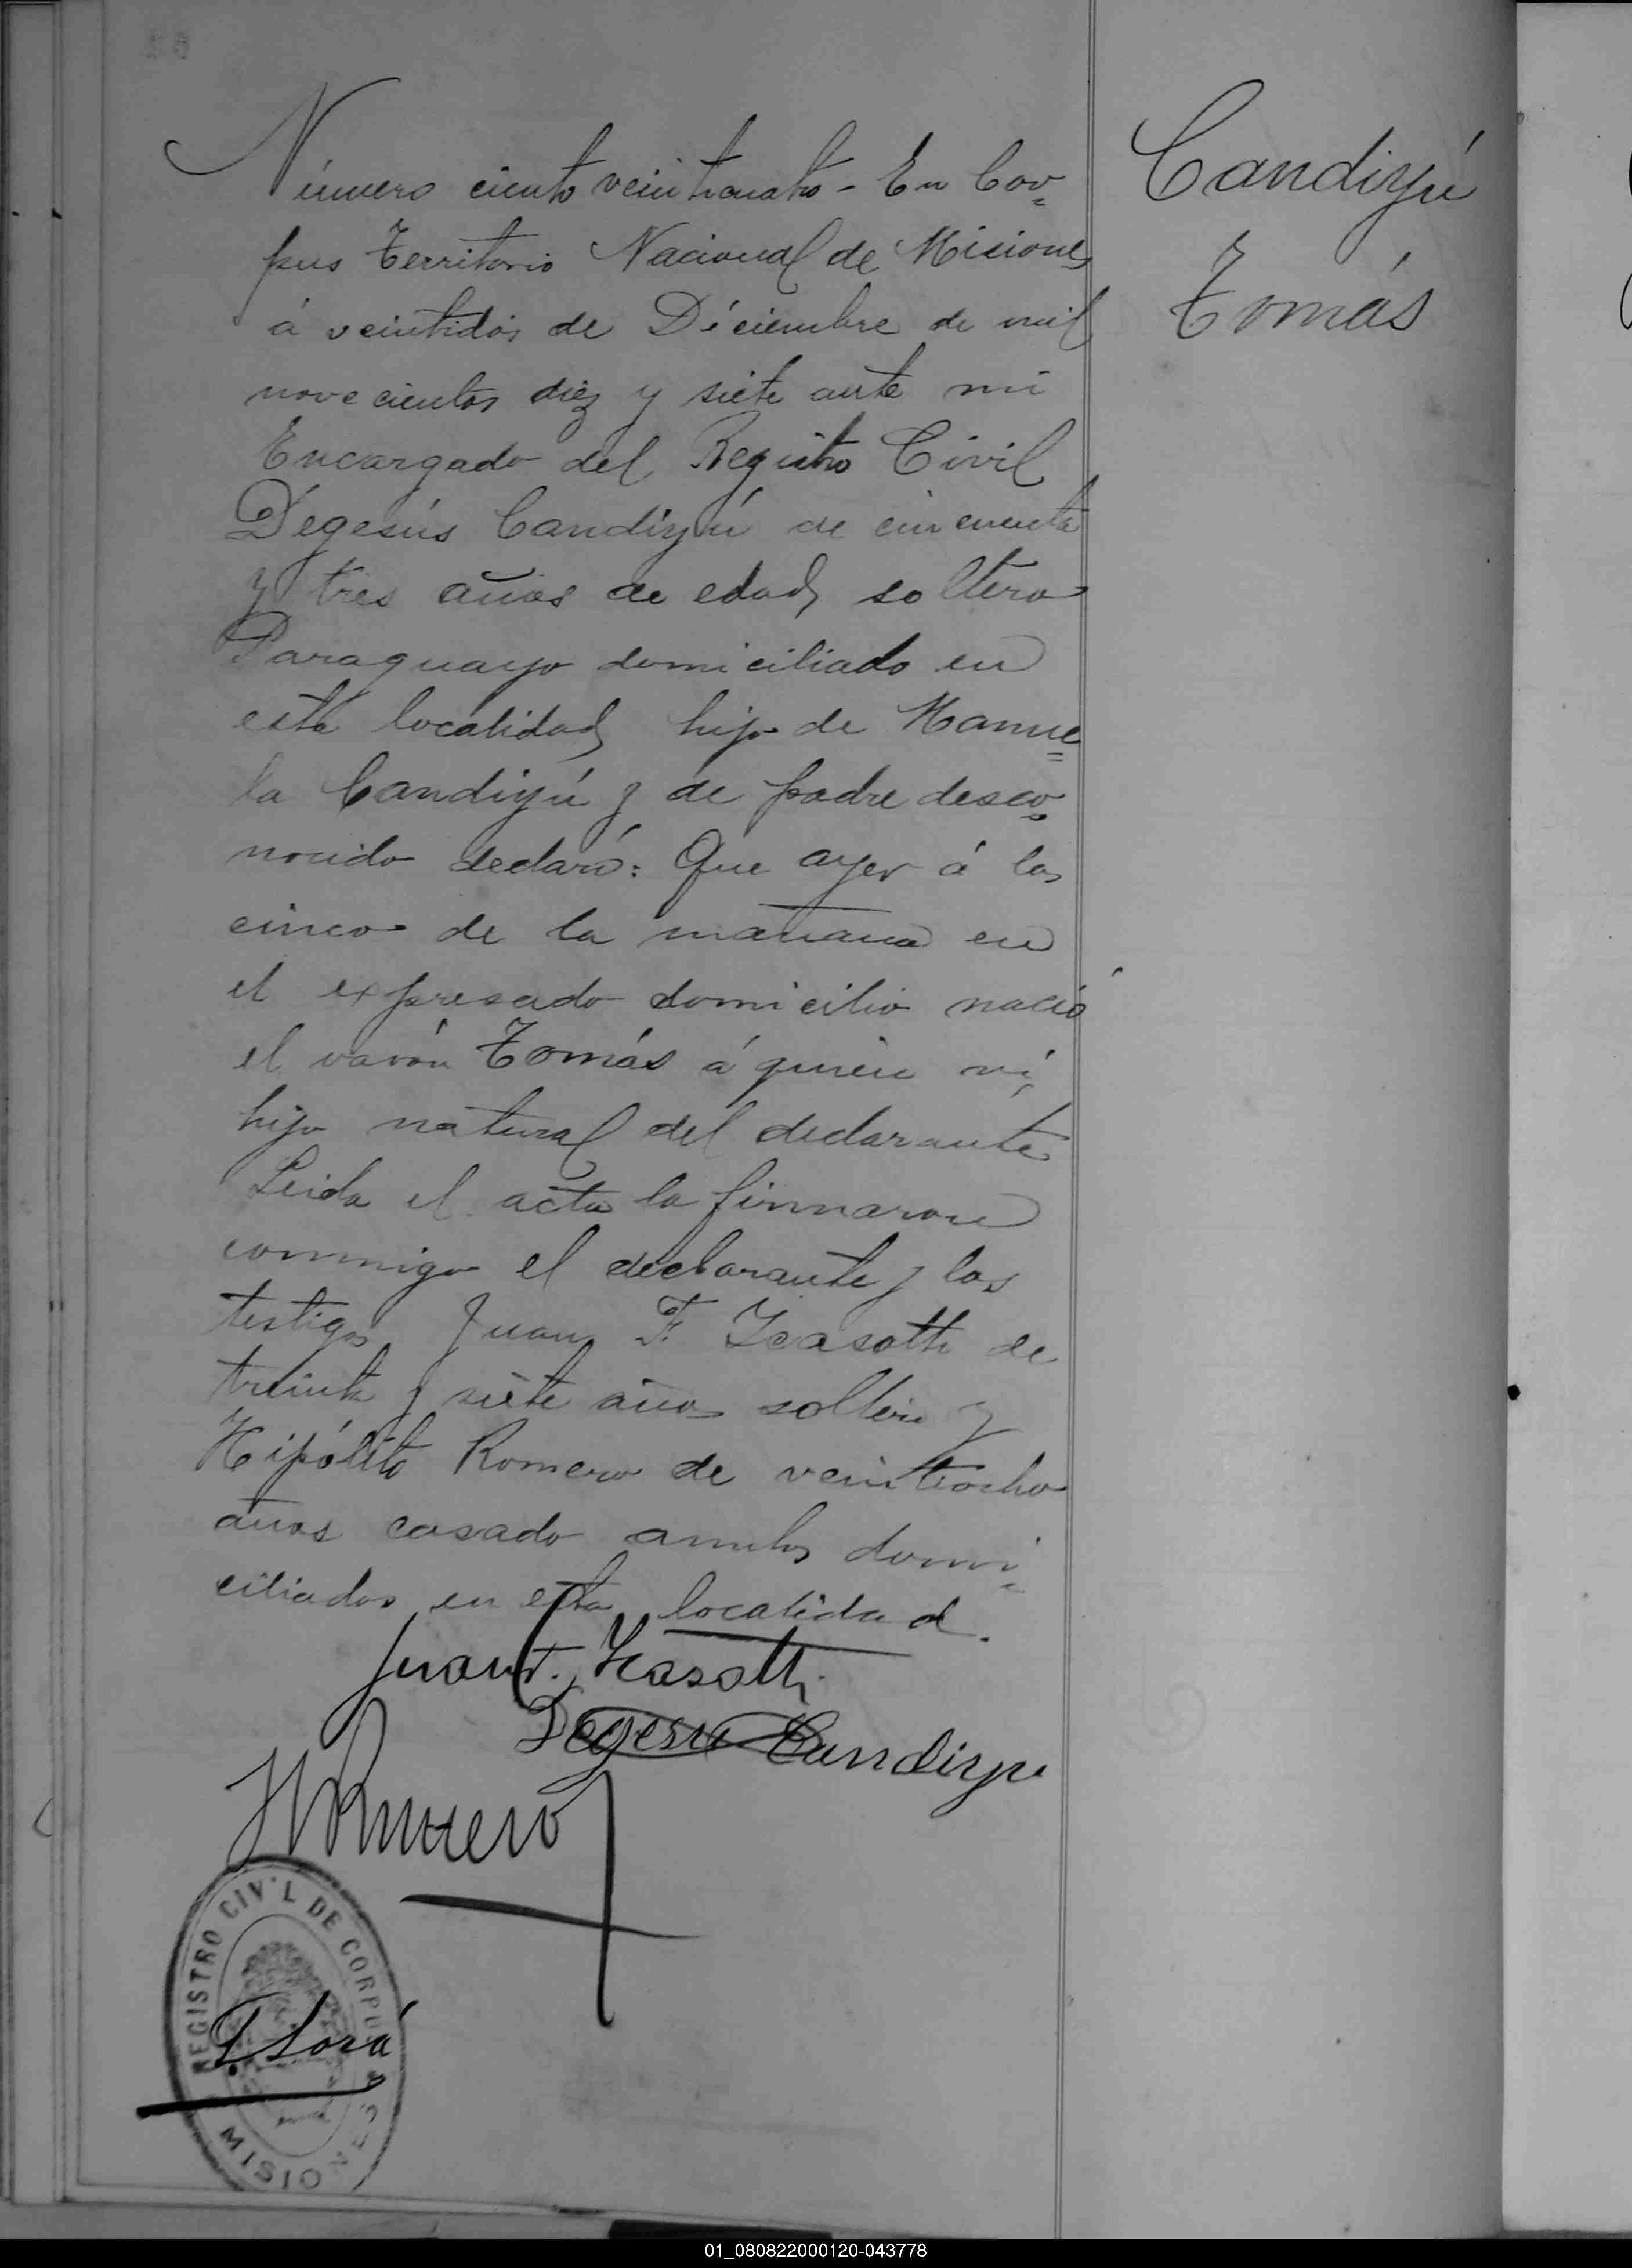 Candiyú
Tomás
Número ciento veinticuatro - En Cor=
pus Territorio Nacional de Misiones
á veintidós de Diciembre de mil
novecientos diez y siete ante mi
Encargado del Registro Civil
Dégesús Candiyú de cincuenta
y tres años de edad, soltero
Paraguayo domiciliado en
esta localidad, hijo de Manue=
la Candiyú y de padre desco=
nocido declaró: Que ayer á las
cinco de la mañana en
el expresado domicilio nació
el varón Tomás á quien ví,
hijo natural del declarante
Leida el acta la firmaron
conmigo el declarante y los
testigos Juan F. de
treinta y siete años soltero y
Hipólito Romero de veintiocho
años casado ambos domi=
ciliados en esta localidad.
Juan F.
Degesu Candiyu
H Romero
REGISTRO CIVIL DE CORPUS
MISIONES
01_080822000120-043778